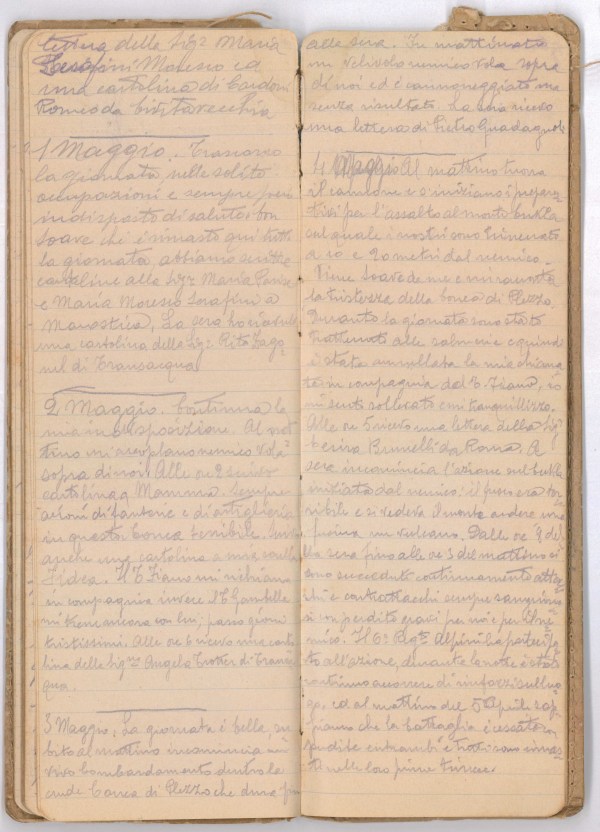 lettera della Sigª Maria
Serafini Moresco ed
una cartolina di Cardoni
Romeo da Civitavecchia
1 Maggio. Trascorro
la giornata nelle solite
occupazioni e sempre però
indisposto di salute, con
Soave che è rimasto qui tutta
la giornata abbiamo scritto
cartoline alla Sigª Maria
e Maria Moresco Serafini a
Marostica, La sera ho ricevuto
una cartolina della Sigª Rita
di Transacqua
2 Maggio. Continua la
mia indisposizione. Al mat
tino un aeroplano nemico vola
sopra di noi. Alle ore 2 scrivo
cartolina a Mamma. Sempre
azioni di fanterie e di artiglieria
in questa conca terribile.
anche una cartolina a mia sorella
Fidea. Il T. Fiano mi richiama
in compagnia invece il T.
mi tiene ancora con lui, passo giorni
tristissimi. Alle ore 6 ricevo una carto
lina della Sigª Angela Trotter di Transac
qua.
3 Maggio, La giornata è bella, su
bito al mattino incomincia un
vivo bombardamento dentro la
conca di Plezzo che dura fino
alle sera. In mattinata
un velivolo nemico vola sopra
di noi ed è cannoneggiato ma
senza risultato. La sera ricevo
una lettera di Pietro Guadagnoli
4 Maggio Al mattino tuona
il cannone e si iniziano i prepara
tivi per l'assalto al monte Cukla
sul quale i nostri sono trincerati
a 10 e 20 metri dal nemico.
Viene Soave da me e mi racconta
la tristezza della conca di Plezzo.
Durante la giornata sono stato
trattenuto alle salmerie e quindi
è stata annullata la mia chiama
ta in compagnia dal T. Fiano, io
mi sento sollevato e mi tranquillizzo.
Alle ore 6 ricevo una lettera della Sigª
Brunelli da Roma. A
sera incomincia l'azione sul Cukla
iniziata dal nemico: il fuoco era ter
ribile e si vedeva il monte ardere come
un vulcano. Dalle ore 8 del
la sera fino alle ore 3 del mattino si
sono succeduti continuamente attac
chi e contrattacchi sempre sanguinosi
con perdite gravi per noi e per il ne
mico. Il 6º Rgtº Alpini ha parteci
to all'azione, durante la notte è stato
continuo accorrere di rinforzi sul luo
go, ed al mattino del 5 Aprile sap
piamo che la battaglia è cessata con
perdite entrambi e tutti sono rimas
ti nelle loro prime trincee.